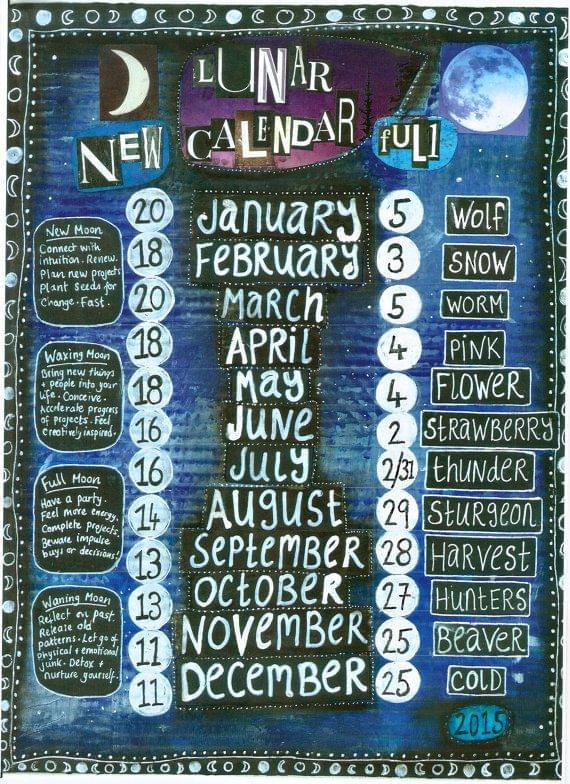 LUNAR
CALENDAR
NEW
FULL
20 JANUARY 5 WOLF
18 FEBRUARY 3 SNOW
20 MARCH 5 WORM
18 APRIL 4 PINK
18 MAY 4 FLOWER
16 JUNE 2 STRAWBERRY
16 JULY 2/31 THUNDER
14 AUGUST 29 STURGEON
13 SEPTEMBER 28 HARVEST
13 OCTOBER 27 HUNTERS
11 NOVEMBER 25 BEAVER
11 DECEMBER 25 COLD
New Moon
Connect with
intuition. Renew.
Plan new projects
Plant seeds for
change. Fast.
Waxing Moon
Bring new things
+ people into your
life. Conceive.
Accelerate progress
of projects. Feel
creatively inspired.
Full Moon
Have a party.
Feel more energy.
Complete projects.
Beware impulse
buys or decisions!
Waning Moon
Reflect on past
Release old
patterns. Let go of
physical + emotional
junk. Detox +
nurture yourself.
2015